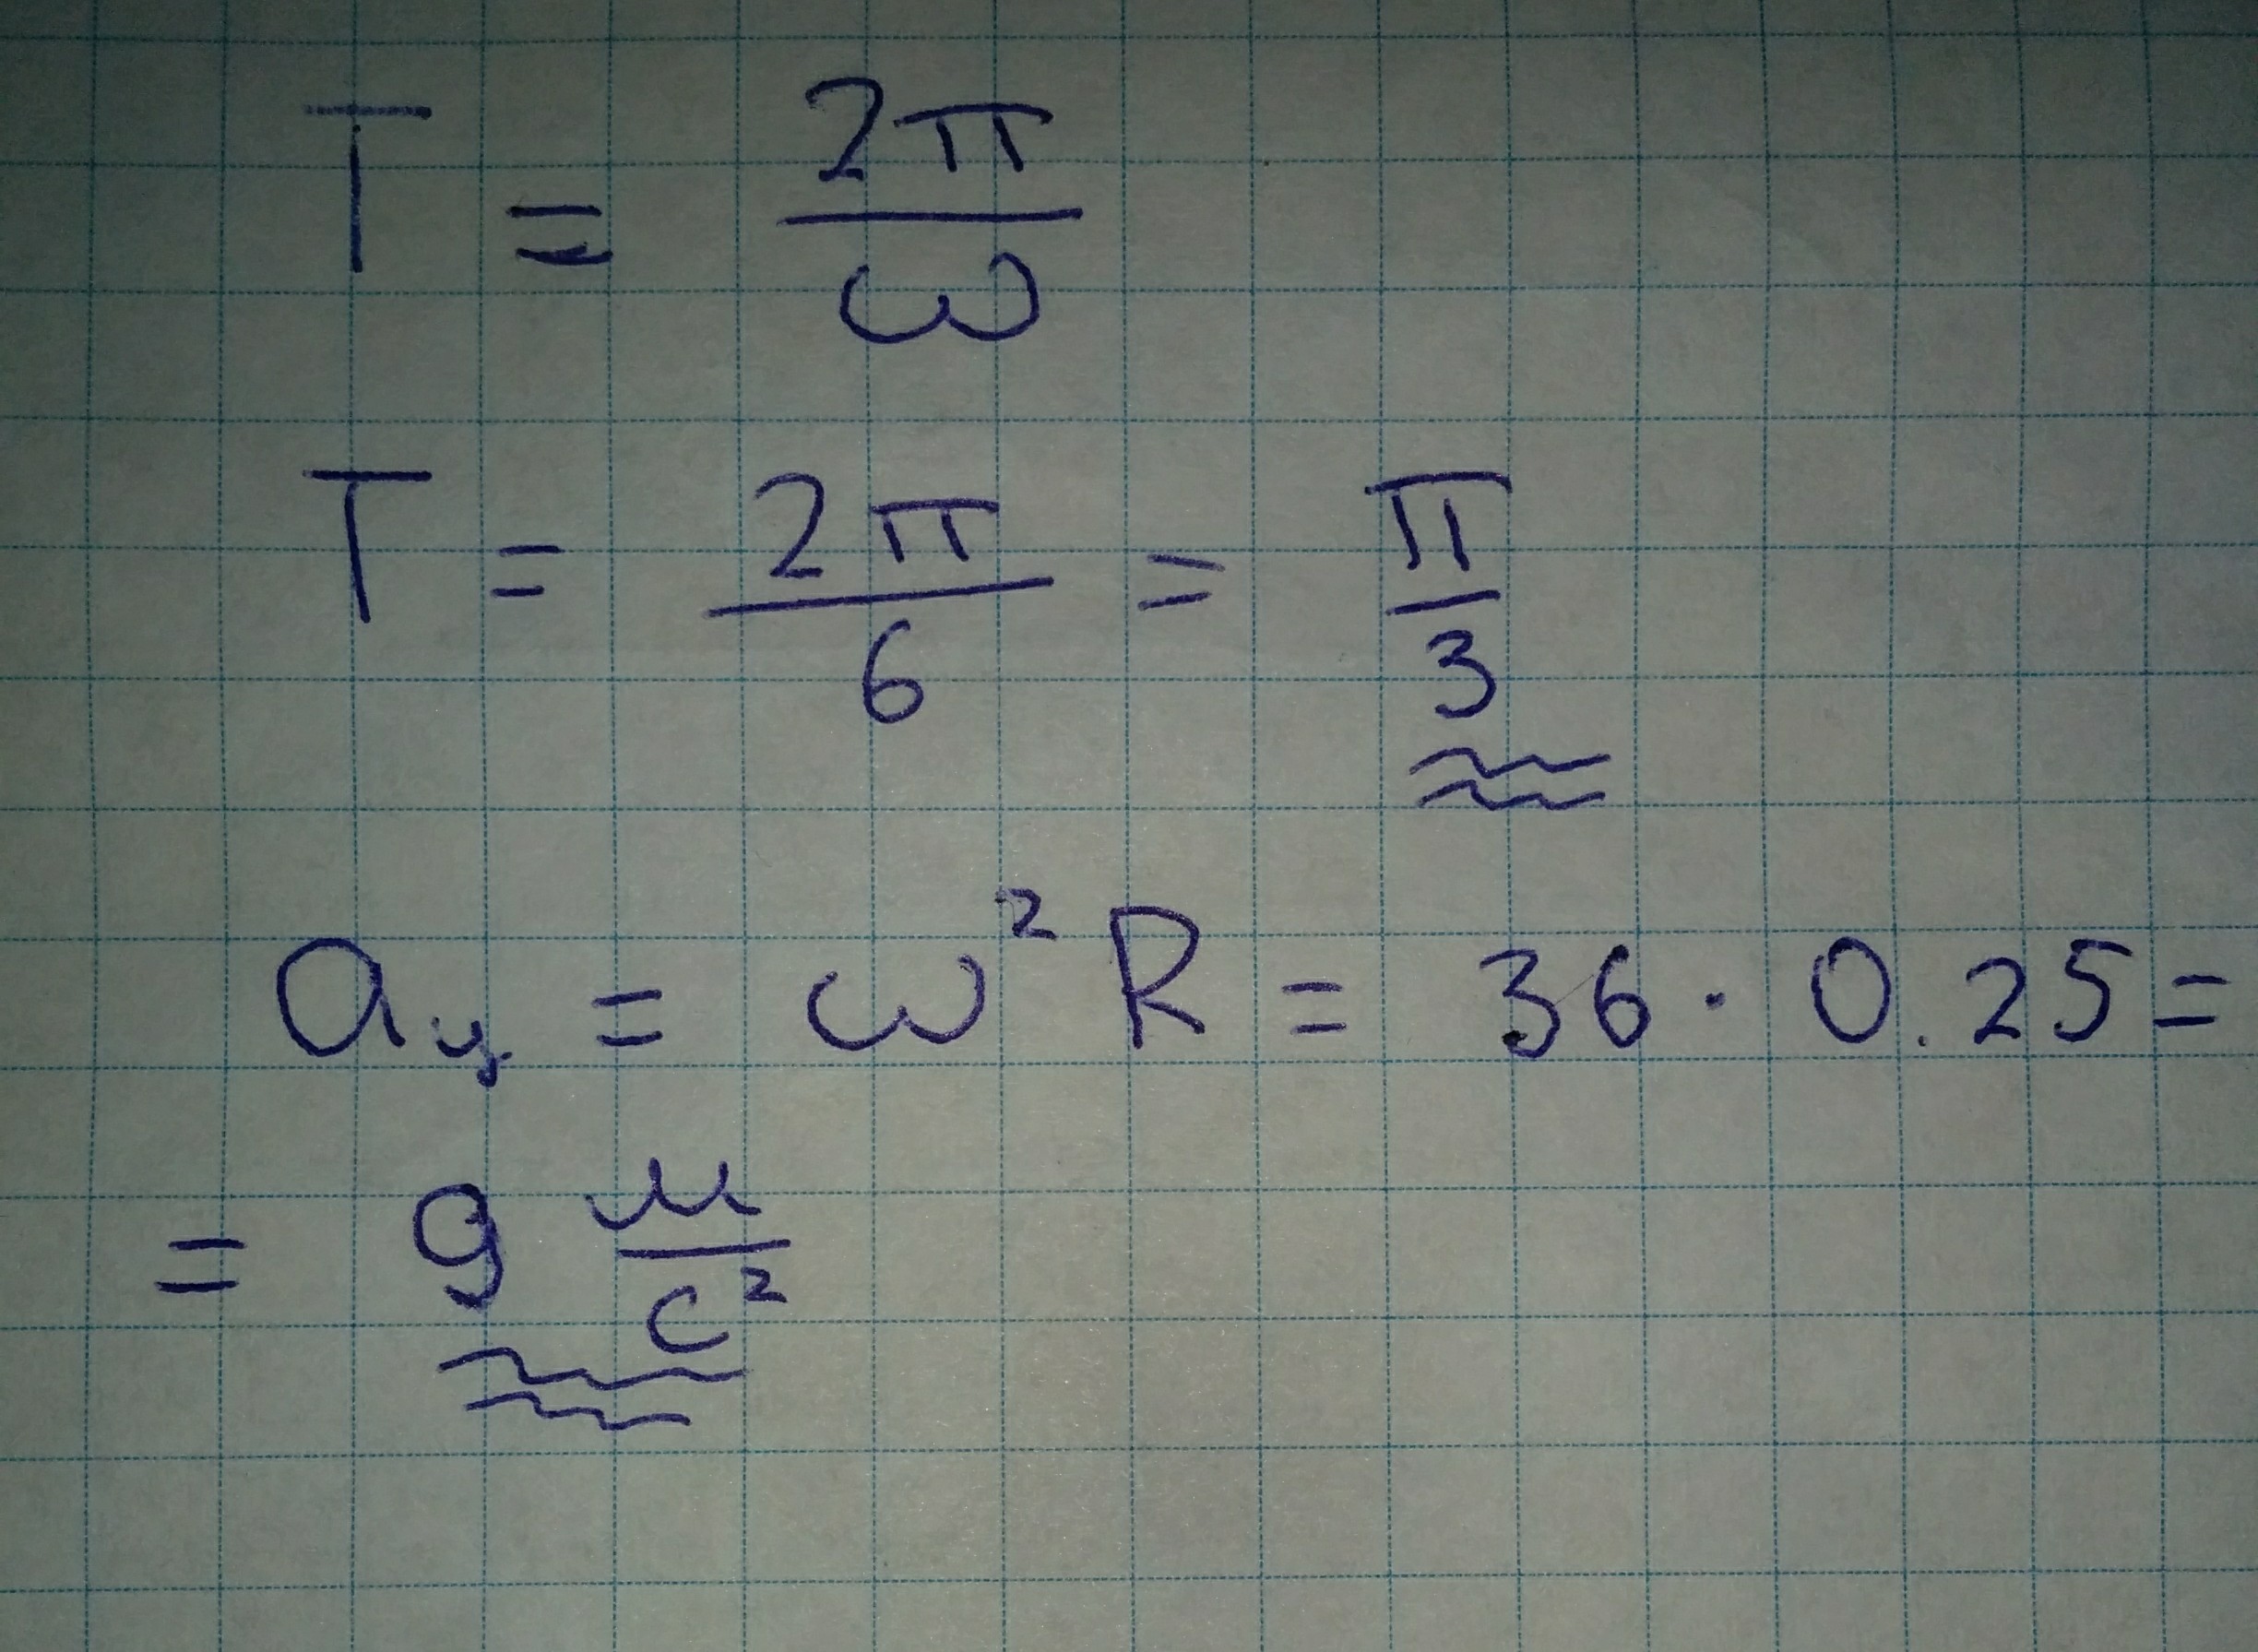 T = 2π/ω
T = 2π/6 = π/3
aц = ω² R = 36 · 0.25 =
= 9 м/с²